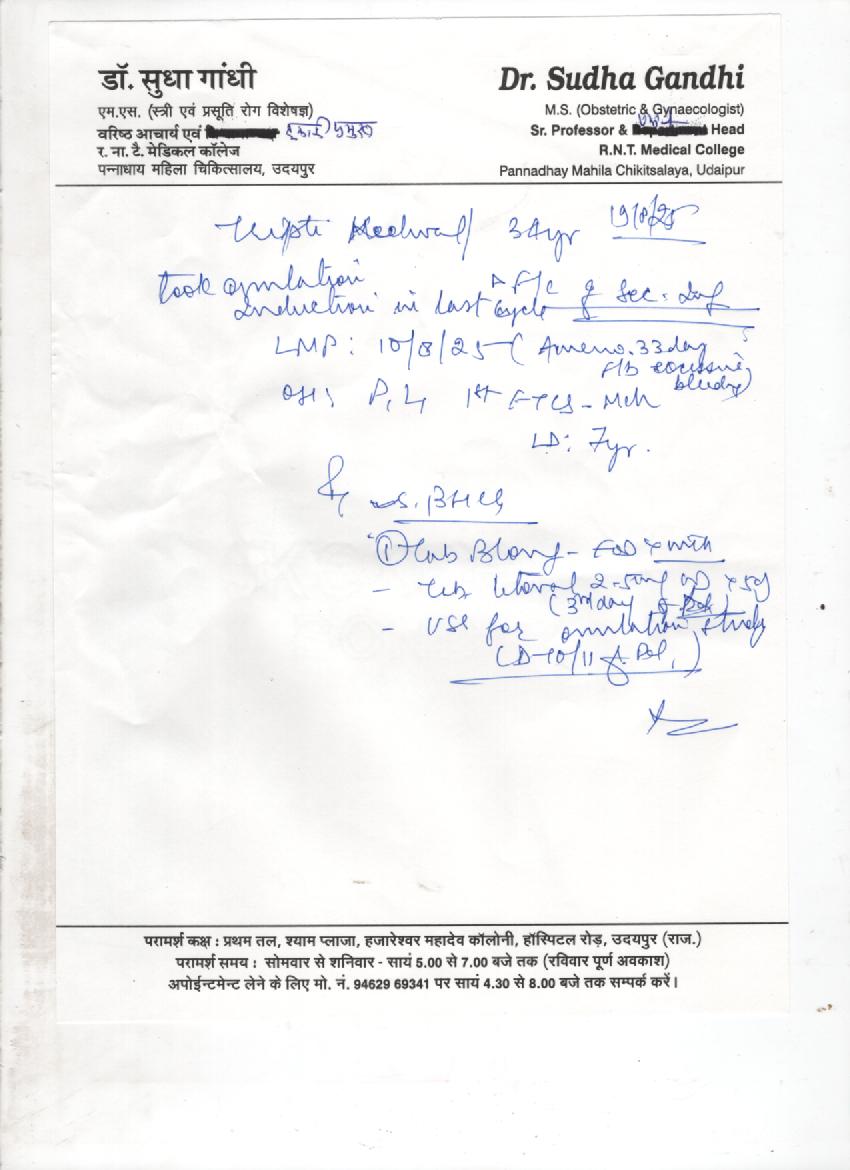 डॉ. सुधा गांधी
एम.एस. (स्त्री एवं प्रसूति रोग विशेषज्ञ)
वरिष्ठ आचार्य एवं इकाई प्रमुख
र. ना. टै. मेडिकल कॉलेज
पन्नाधाय महिला चिकित्सालय, उदयपुर
Dr. Sudha Gandhi
M.S. (Obstetric & Gynaecologist)
Sr. Professor & Head
R.N.T. Medical College
Pannadhay Mahila Chikitsalaya, Udaipur
34yr 19/8/25
took ovulation
Induction in last cycle
LMP: 10/8/25 (Ameno. 33day
f/b excessive
bleeding)
OH: P1L1 1st FTLS - Mch
LD: 7yr.
S. BHCG
① Tab
2.5mg OD x 5d
(3rd day of
- USG for ovulation study
(D-10/11 of
परामर्श कक्ष : प्रथम तल, श्याम प्लाजा, हजारेश्वर महादेव कॉलोनी, हॉस्पिटल रोड़, उदयपुर (राज.)
परामर्श समय : सोमवार से शनिवार - सायं 5.00 से 7.00 बजे तक (रविवार पूर्ण अवकाश)
अपोईन्टमेन्ट लेने के लिए मो. नं. 94629 69341 पर सायं 4.30 से 8.00 बजे तक सम्पर्क करें।